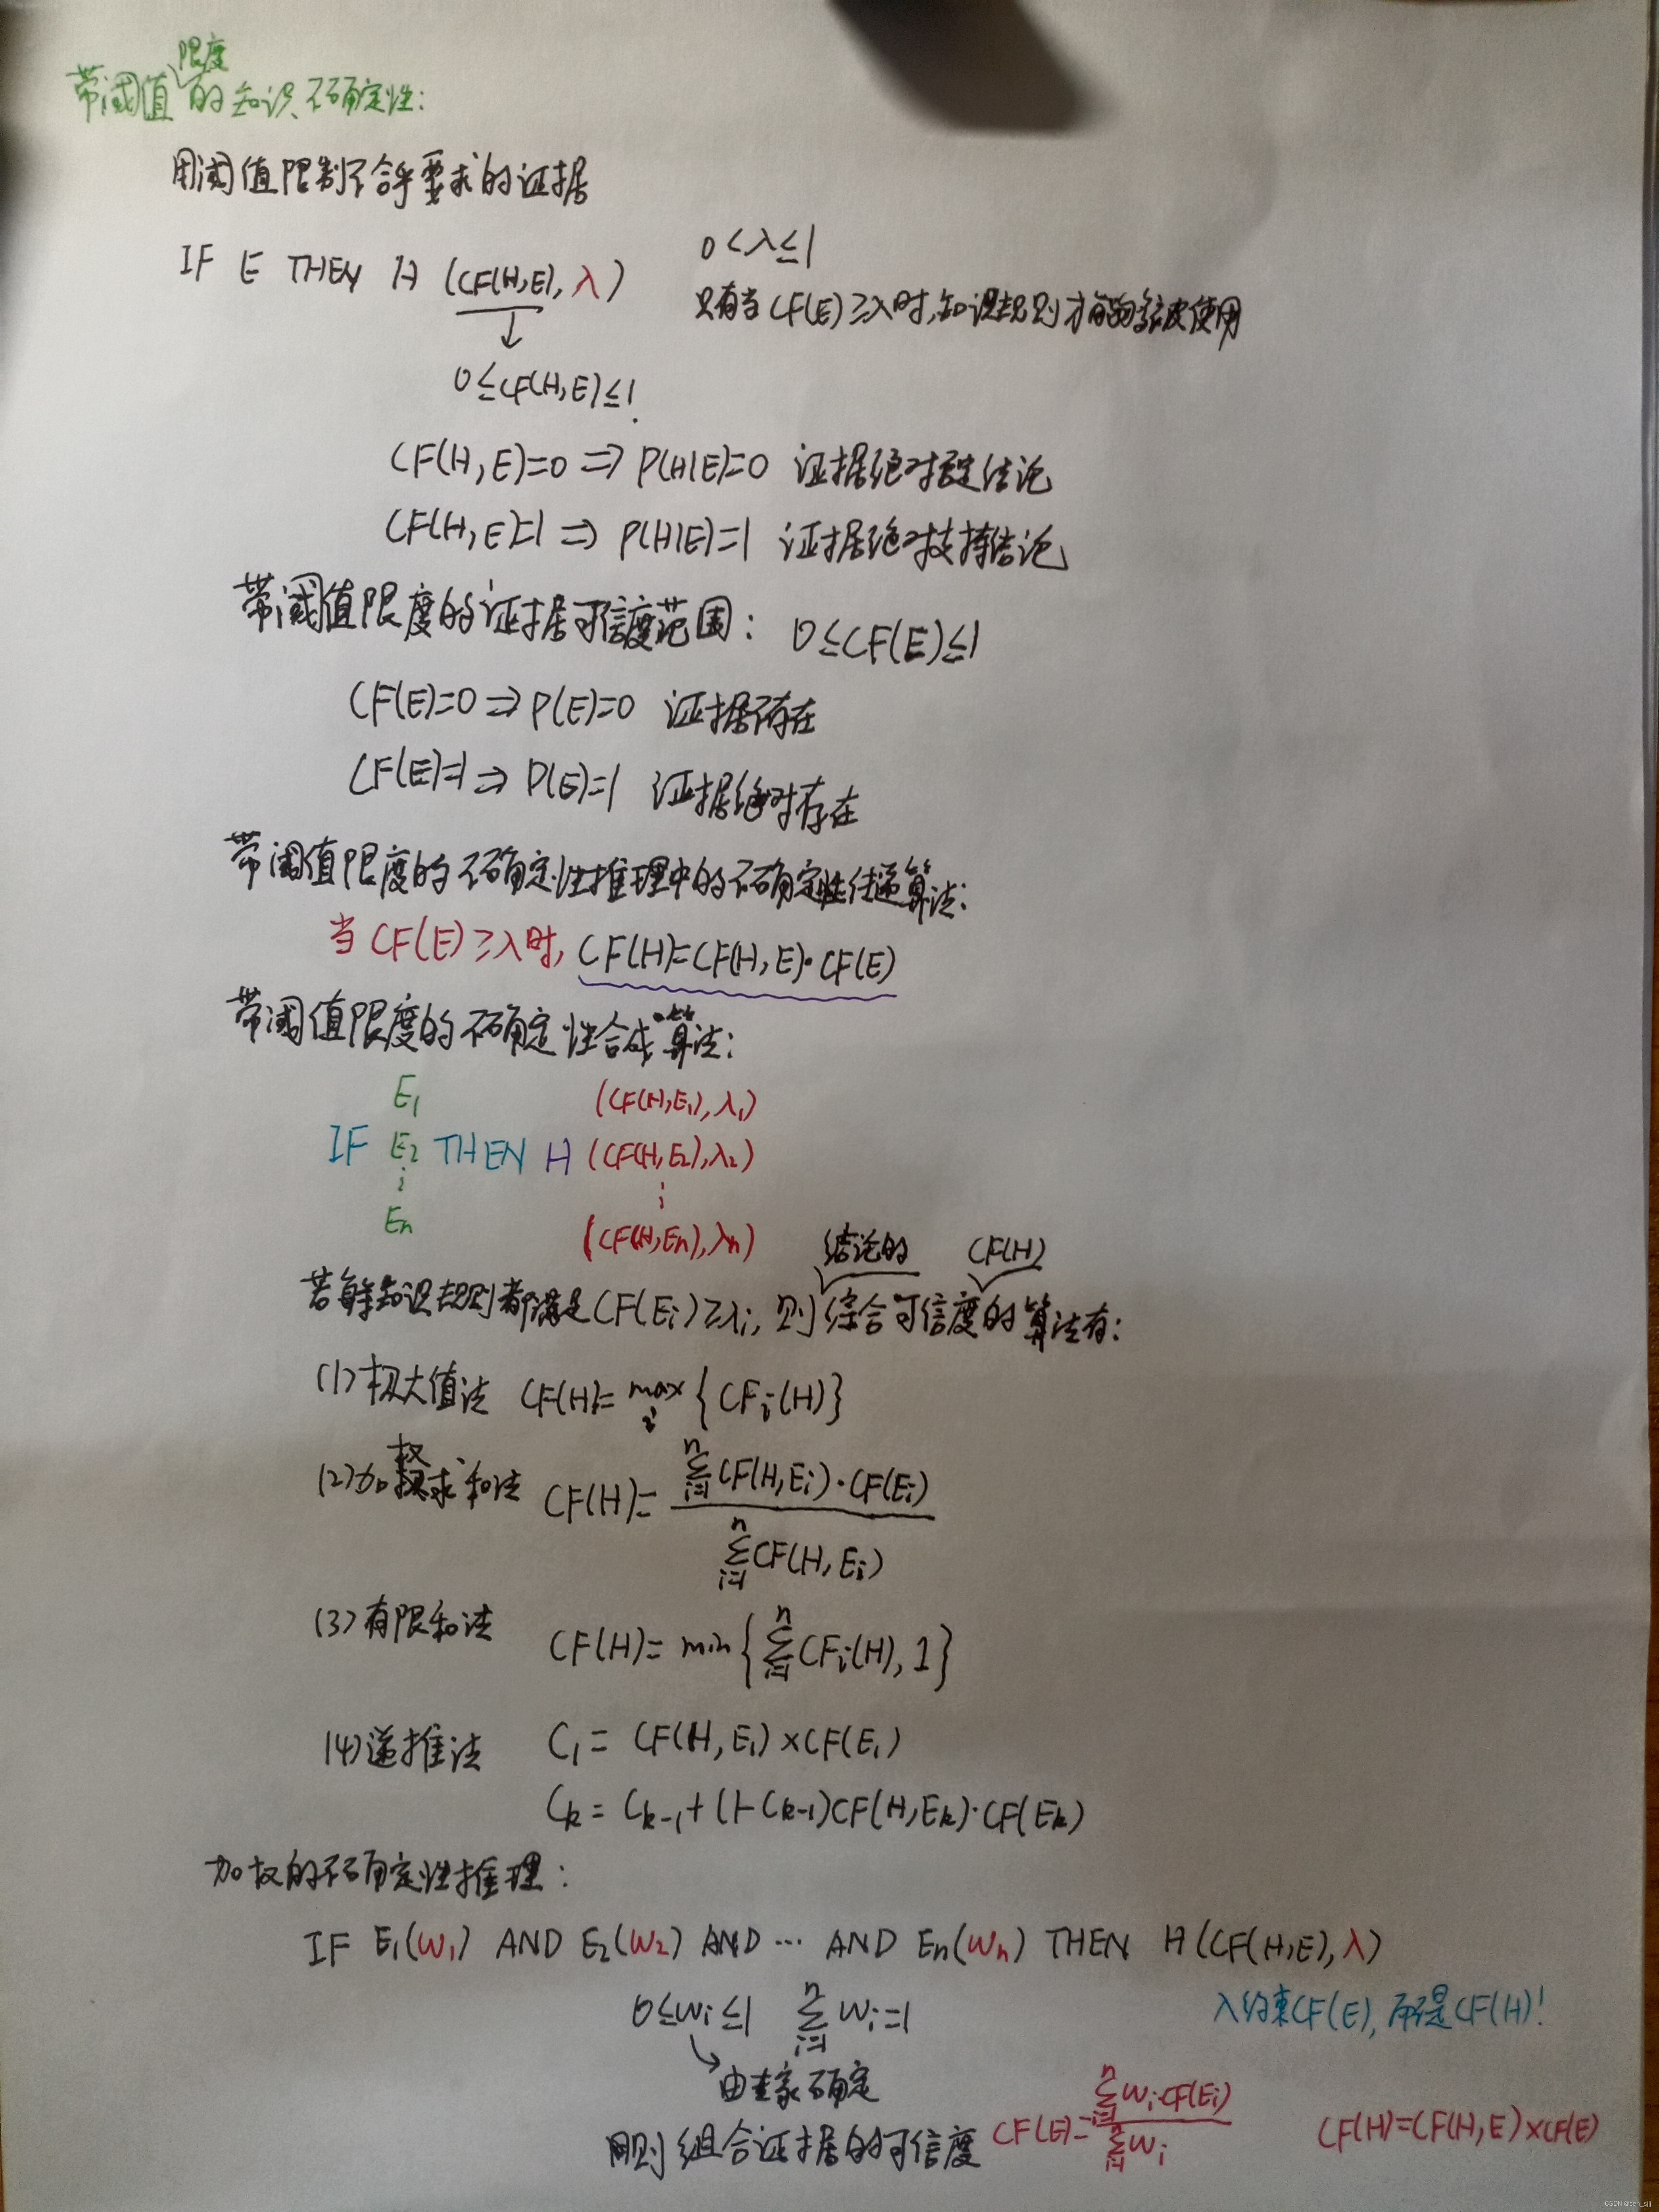 限度
带阈值的知识不确定性:
用阈值限制不合乎要求的证据
IF E THEN H (CF(H,E), λ)
0<λ≤1
只有当CF(E)≥λ时,知识规则才能够被使用
↓
0≤CF(H,E)≤1
CF(H,E)=0 ⇒ P(H|E)=0 证据绝对否定结论
CF(H,E)=1 ⇒ P(H|E)=1 证据绝对支持结论
带阈值限度的证据可信度范围: 0≤CF(E)≤1
CF(E)=0 ⇒ P(E)=0 证据不存在
CF(E)=1 ⇒ P(E)=1 证据绝对存在
带阈值限度的不确定性推理中的不确定性传递算法:
当CF(E)≥λ时, CF(H)=CF(H,E)·CF(E)
带阈值限度的不确定性合成算法:
E1 (CF(H,E1),λ1)
IF E2 THEN H (CF(H,E2),λ2)
⋮ ⋮
En (CF(H,En),λn)
结论的 CF(H)
若每条知识规则都满足CF(Ei)≥λi, 则综合可信度的算法有:
(1)极大值法 CF(H)= max_i {CFi(H)}
(2)加权求和法 CF(H)= ∑_{i=1}^{n} CF(H,Ei)·CF(Ei) / ∑_{i=1}^{n} CF(H,Ei)
(3)有限和法 CF(H)= min{∑_{i=1}^{n} CFi(H), 1}
(4)递推法 C1 = CF(H,E1)×CF(E1)
Ck = Ck-1+(1-Ck-1)CF(H,Ek)·CF(Ek)
加权的不确定性推理:
IF E1(w1) AND E2(w2) AND … AND En(wn) THEN H(CF(H,E),λ)
0≤wi≤1 ∑_{i=1}^{n} wi=1
λ约束CF(E), 而不是CF(H)!
由专家确定
则组合证据的可信度 CF(E)= ∑_{i=1}^{n} wi·CF(Ei) / ∑_{i=1}^{n} wi CF(H)=CF(H,E)×CF(E)